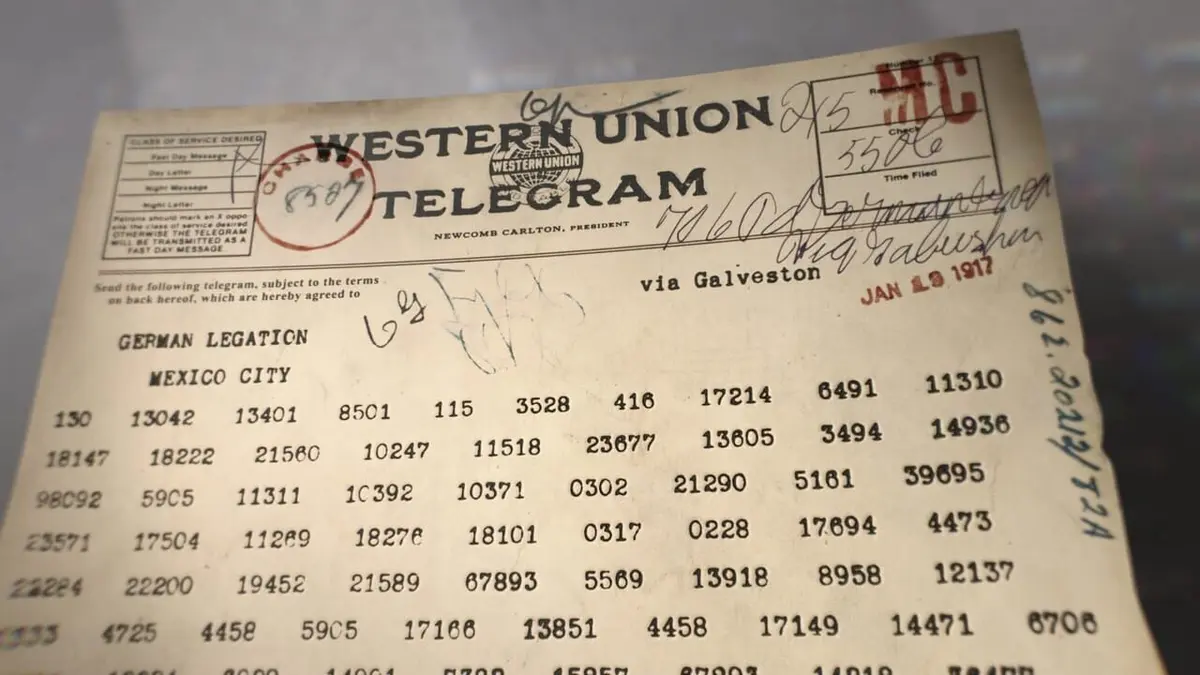 CLASS OF SERVICE DESIRED
Fast Day Message
Day Letter
Night Message
Night Letter
Patrons should mark an X oppo-
site the class of service desired
OTHERWISE THE TELEGRAM
WILL BE TRANSMITTED AS A
FAST DAY MESSAGE
CHARGE
WESTERN UNION
WESTERN UNION
TELEGRAM
NEWCOMB CARLTON, PRESIDENT
MC
Check
Time Filed
Send the following telegram, subject to the terms
on back hereof, which are hereby agreed to
via Galveston
JAN 19 1917
GERMAN LEGATION
MEXICO CITY
130 13042 13401 8501 115 3528 416 17214 6491 11310
18147 18222 21560 10247 11518 23677 13605 3494 14936
98092 5905 11311 10392 10371 0302 21290 5161 39695
23571 17504 11269 18276 18101 0317 0228 17694 4473
22284 22200 19452 21589 67893 5569 13918 8958 12137
4725 4458 5905 17166 13851 4458 17149 14471 6706